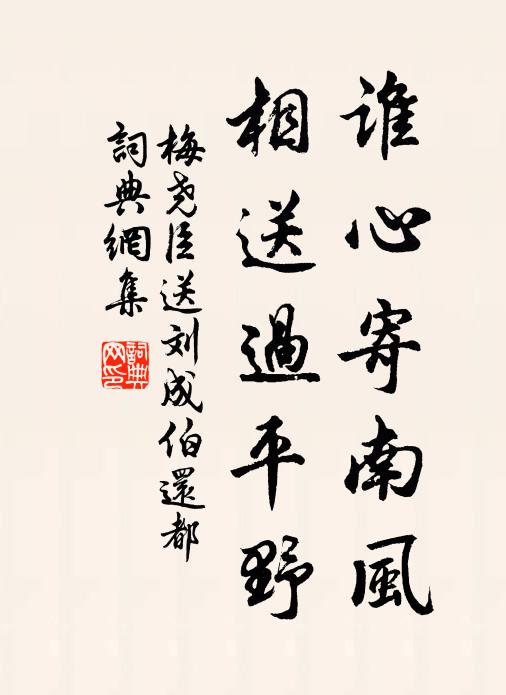 谁心寄南風
相送過平野
梅尧臣送刘成伯還都
詞典網集
詞典网印